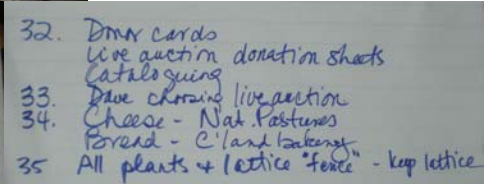 32. Donor cards
live auction donation sheets
Cataloguing
33. Dave choosing live auction
34. Cheese - Nat. Pastures
Bread - C'land bakery
35 All plants + lattice "fence" - keep lattice